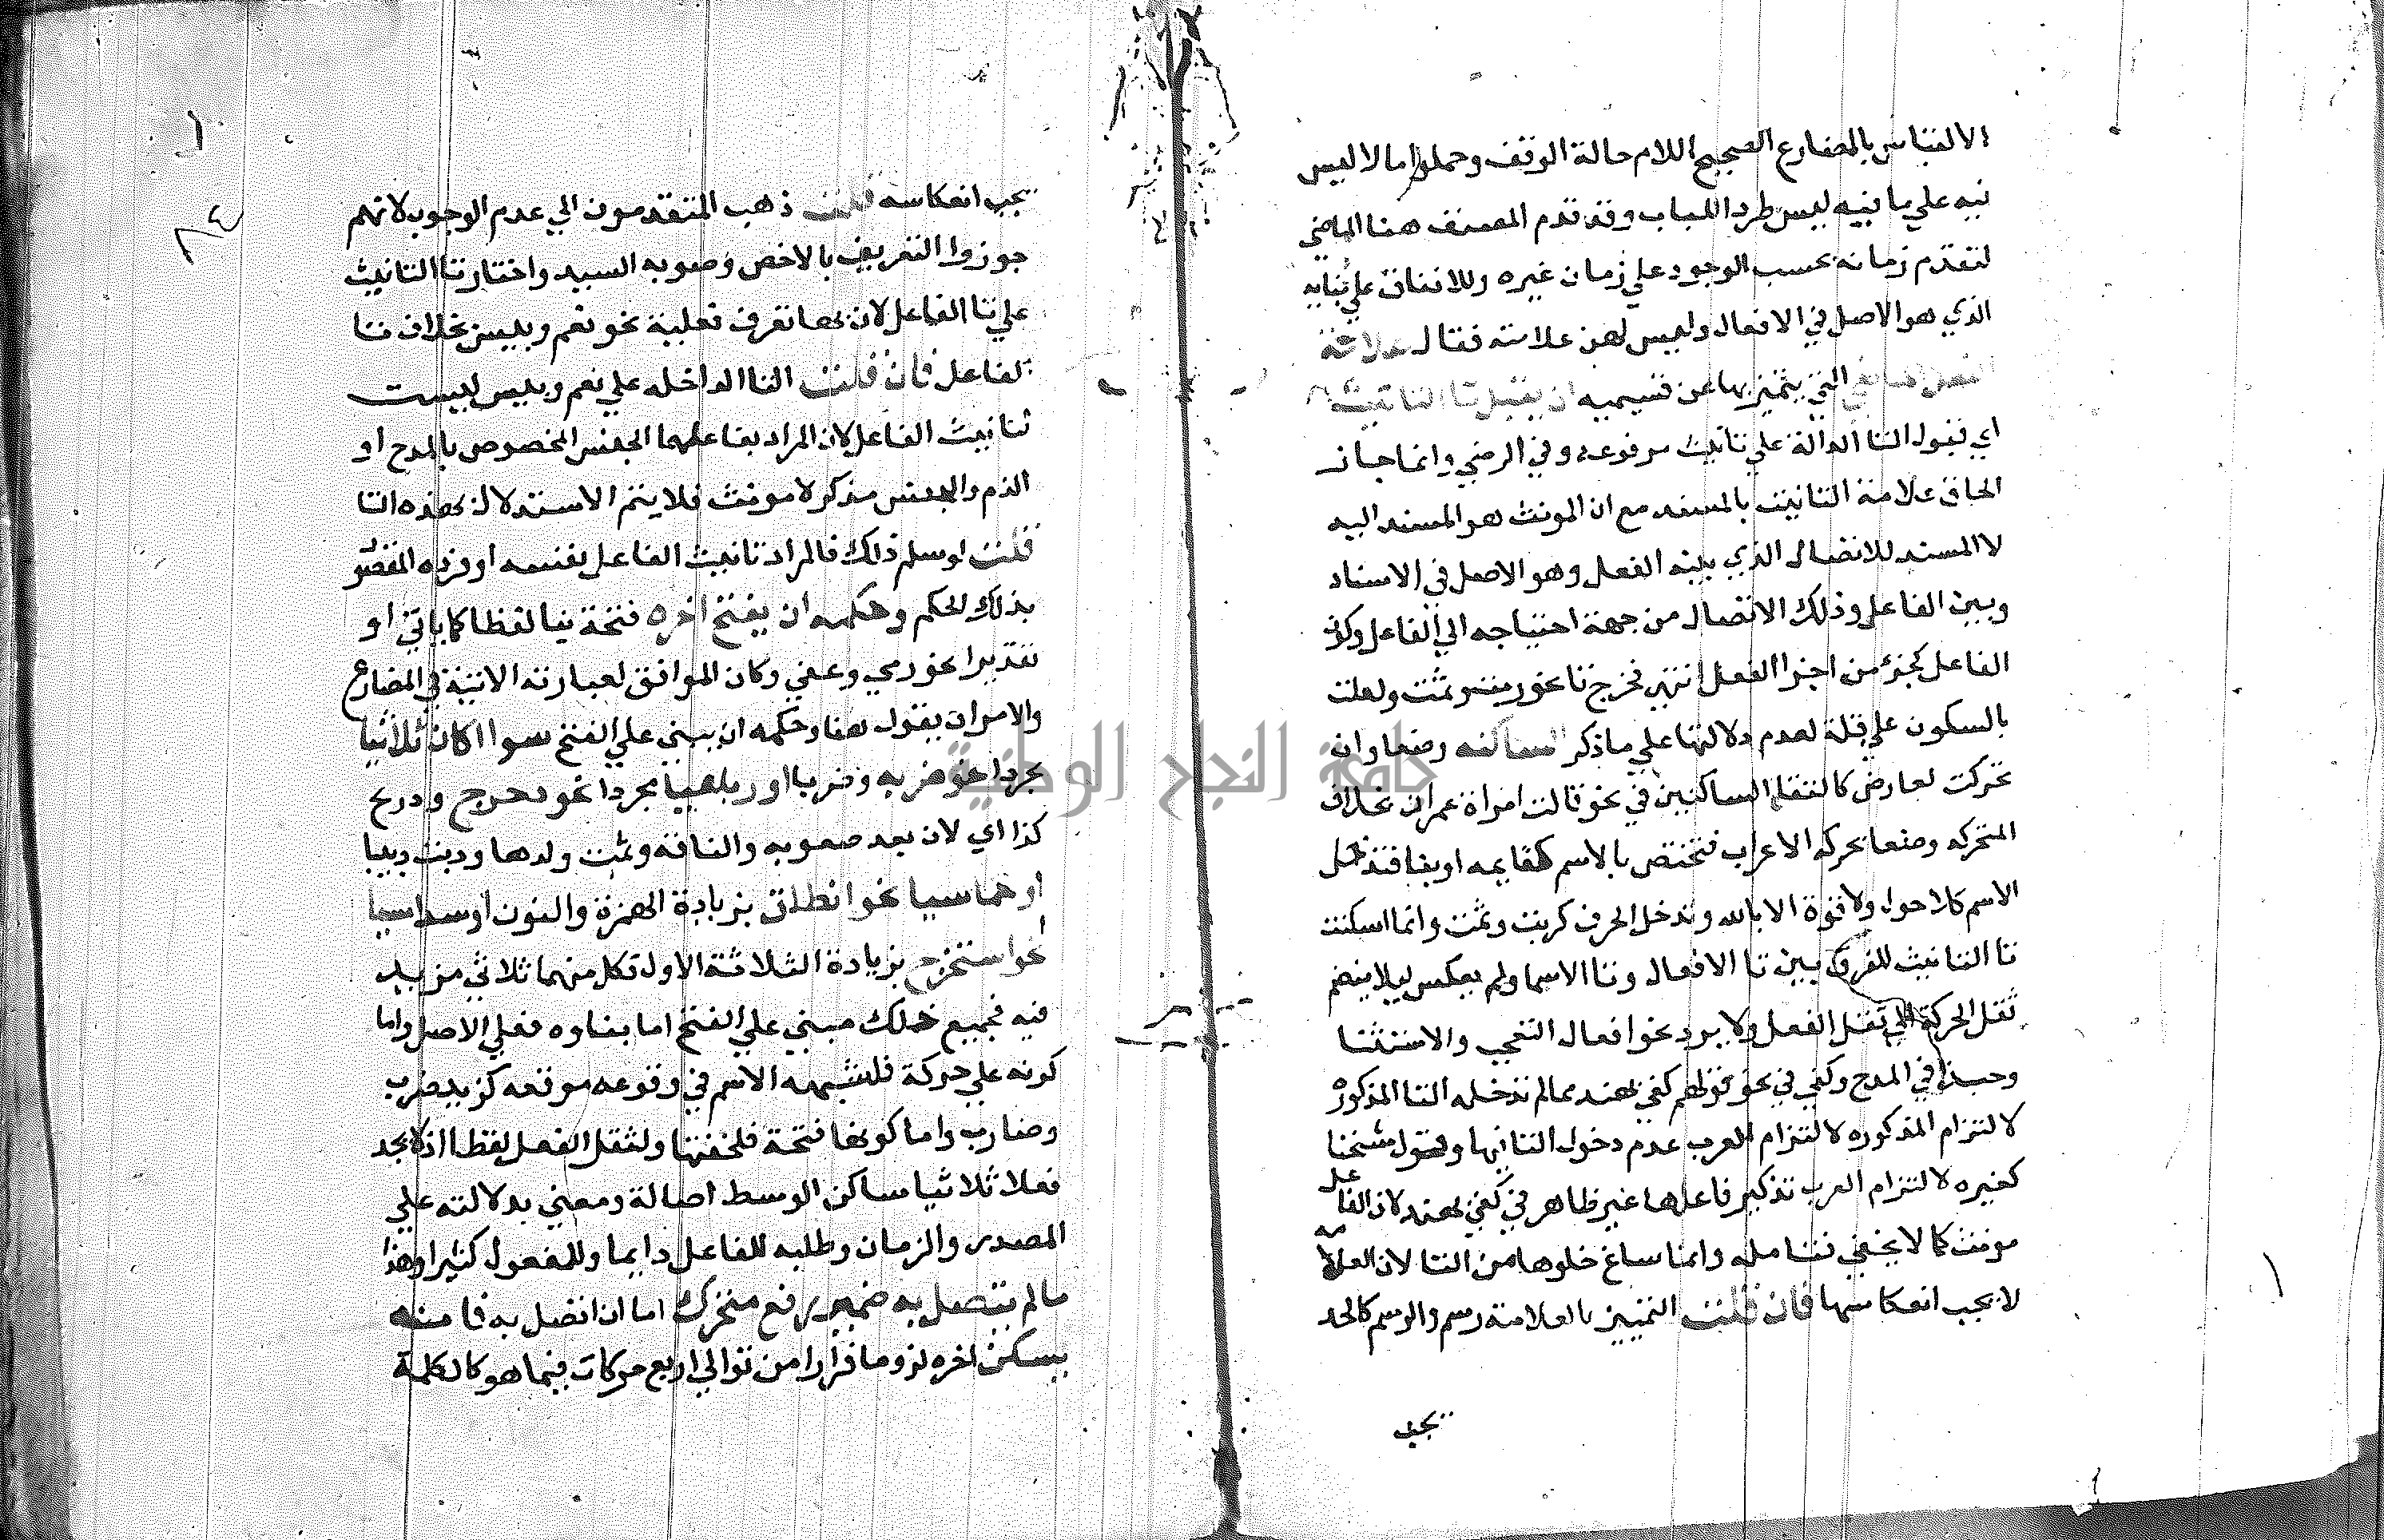 الالتباس بالمضارع الصحيح اللام حالة الوقف وحملوا ما لا لبس
فيه علي ما فيه لبس طردا للباب وقد قدم المصنف هنا الماضي
لتقدم زمانه بحسب الوجود علي زمان غيره وللاتفاق علي بنايه
الذي هو الاصل في الافعال وليس لهن علامته فقال علامة
الفعل الماضي التي يتميز بها عن قسيميه ان يقبل تا التانيث
اي قبول التا الدالة علي تانيث مرفوعه وفي الرضي وانما جاز
الحاق علامة التانيث بالمسند مع ان المونث هو المسند اليه
لا المسند للاتصال الذي بينه الفعل وهو الاصل في الاسناد
وبين الفاعل وذلك الاتصال من جهة احتياجه الي الفاعل وكون
الفاعل كجزء من اجزا الفعل انتهي فخرج تا نحو ربت وثمت ولعلت
بالسكون علي قلة لعدم دلالتها علي ما ذكر الساكنه وضعا وان
تحركت لعارض كالتقا الساكنين في نحو قالت امراة عمران بخلاف
المتحركه وضعا بحركة الاعراب فتختص بالاسم كقايمه او بنا فتدخل
الاسم كلا حول ولا قوة الا بالله وتدخل الحرف كربت وثمت وانما اسكنت
تا التانيث للفرق بين تا الافعال وتا الاسما ولم يعكس ليلا ينضم
ثقل الحركة الي ثقل الفعل ولا يرد نحو افعال التعجب والاستثنا
وحبذا في المدح وكفي في نحو قولهم كفي بهند مما لم تدخله التا المذكوره
لالتزام المذكوره لالتزام العرب عدم دخول التا فيها وقول شيخنا
كغيره لالتزام العرب تذكير فاعلها غير ظاهر في كفي بهند لان الفاعل
مونث كما لا يخفي فتامله وانما ساغ خلوها من التا لان العلامه
لا يجب انعكاسها فان قلت التمييز بالعلامة رسم والرسم كالحد
يجب
يجب انعكاسه قلت ذهب المتقدمون الي عدم الوجوب لانهم
جوزوا التعريف بالاخص وصوبه السيد واختارتا التانيث
علي تا الفاعل لان بها تعرف فعلية نحو نعم وبيس بخلاف تا
الفاعل فان قلت التا الداخله علي نعم وبيس ليست
تانيث الفاعل لان المراد بفاعلهما الجنس المخصوص بالمدح او
الذم والجنس مذكر لا مونث فلا يتم الاستدلال بهذه التا
قلت لو سلم ذلك فالمراد تانيث الفاعل بقسمه او فرده المقصود
بذلك الحكم وحكمه ان يفتح اخره فتحة بنا لفظا كما ياتي او
تقديرا نحو رمي وعفي وكان الموافق لعبارته الاتية في المضارع
والامر ان يقول هنا وحكمه ان يبني علي الفتح سوا اكان ثلاثيا
مجردا نحو ضربه وضربا او رباعيا مجردا نحو دحرج ودربخ
كذا اي لان بعد صعوبه والناقة ولدها ودبت دبيبا
او خماسيا نحو انطلق بزيادة الهمزة والنون او سداسيا
نحو استخرج بزيادة الثلاثة الاول فكل منهما ثلاثي مزيد
فيه فجميع ذلك مبني علي الفتح اما بناوه فعلي الاصل واما
كونه علي حركة فلشبهه الاسم في وقوعه موقعه كزيد ضرب
وضارب واما كونها فتحة فلخفتها ولثقل الفعل لفظا اذ لا يجد
فعلا ثلاثيا ساكن الوسط اصالة ومعني بدلالته علي
المصدر والزمان وطلبه للفاعل دايما وللمفعول كثيرا وهذا
ما لم يتصل به ضمير رفع متحرك اما ان اتصل به فامنه
يسكن اخره لزوما فرارا من توالي اربع حركات فيما هو كالكلمة
جامعة النجاح الوطنية